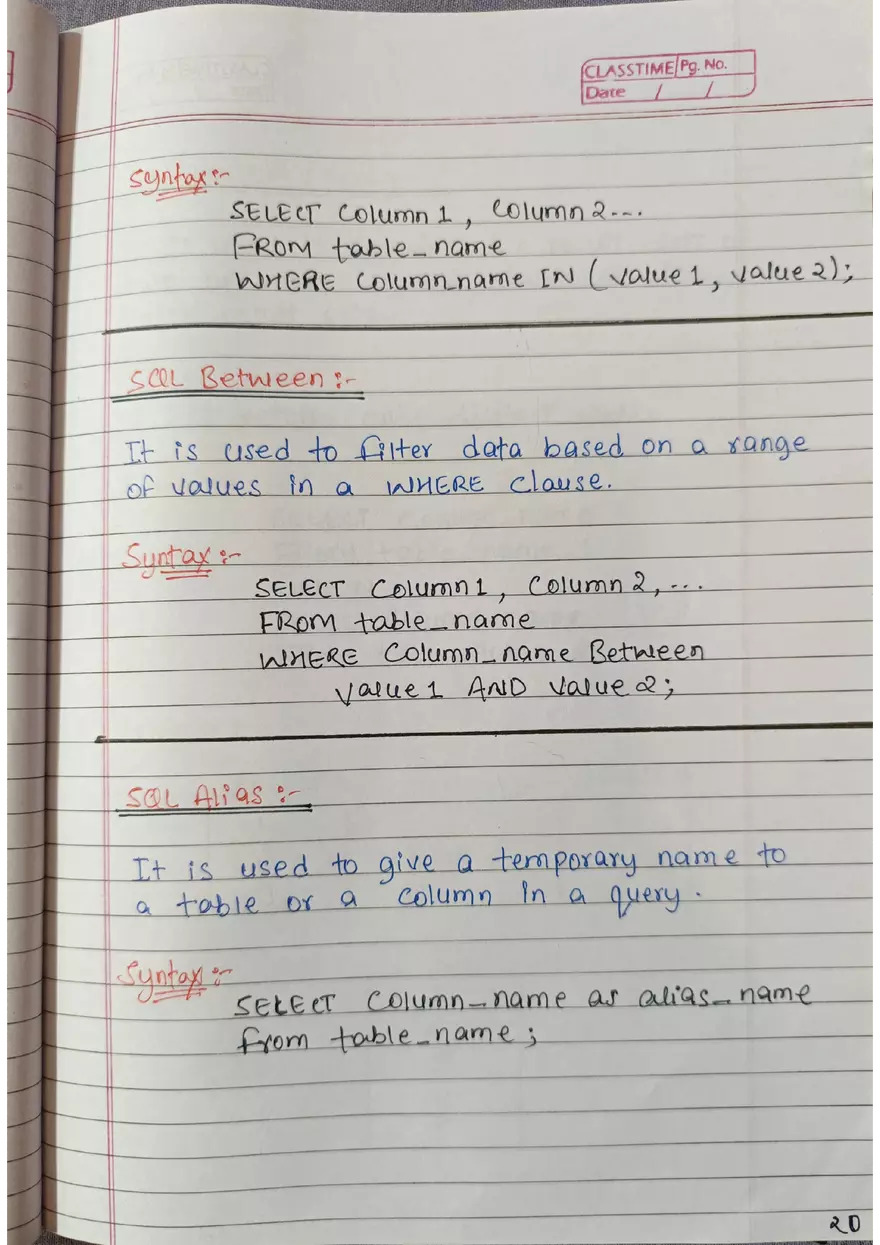 CLASSTIME Pg. No.
Date / /
Syntax:-
SELECT Column1, Column2...
FROM table_name
WHERE Column_name IN (value1, value2);
SQL Between:-
It is used to filter data based on a range
of values in a WHERE clause.
Syntax:-
SELECT Column1, Column2,...
FROM table_name
WHERE Column_name Between
Value1 AND Value2;
SQL Alias:-
It is used to give a temporary name to
a table or a column in a query.
Syntax:-
SELECT Column_name as alias_name
from table_name;
20